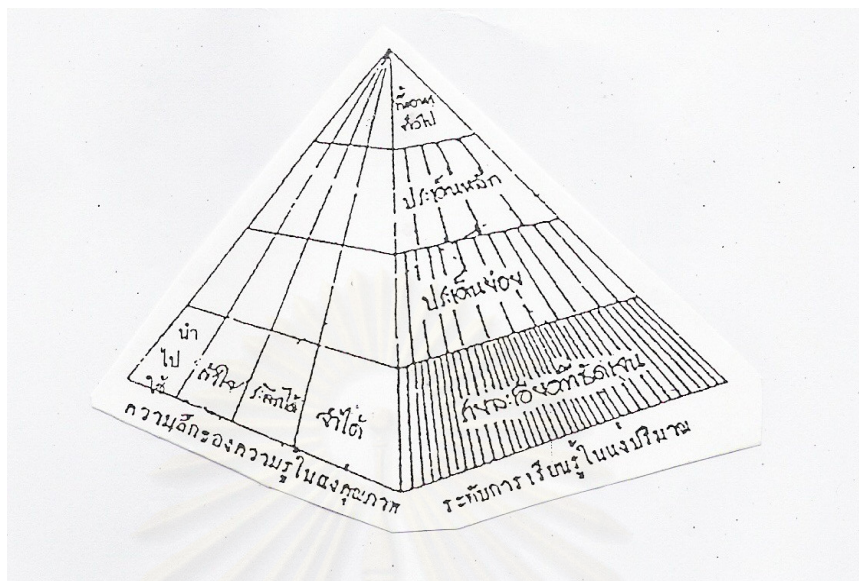 ทั่วไป
ประเด็นหลัก
ประเด็นย่อย
นำ
ไป
ใช้
เข้าใจ
ระลึกได้
จำได้
ความลึกของความรู้ในแง่คุณภาพ
ระดับการเรียนรู้ในแง่ปริมาณ